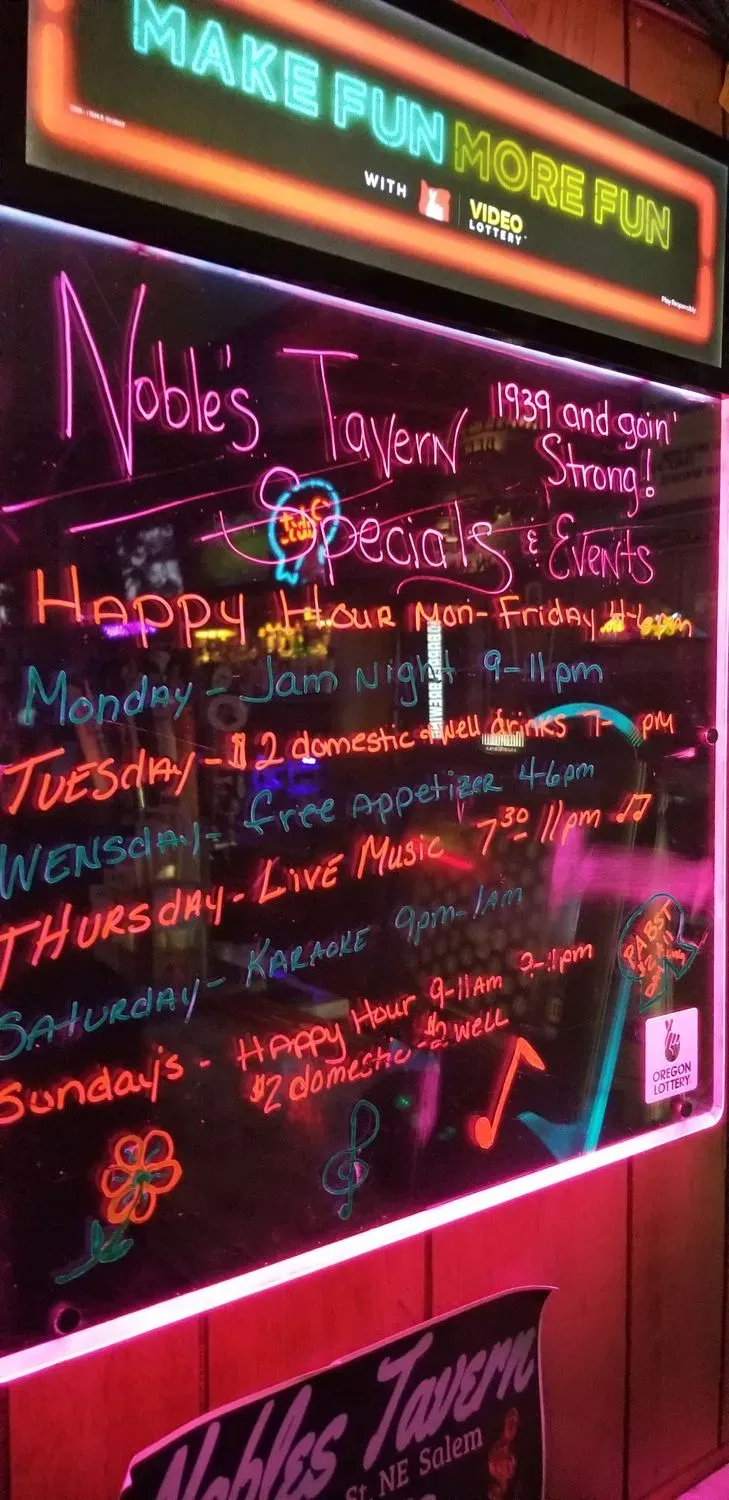 MAKE FUN MORE FUN
WITH VIDEO LOTTERY
Play Responsibly
Noble's Tavern
1939 and goin'
Strong!
Specials & Events
HAPPY HOUR MON-FriDAY 4-6pm
Monday - Jam Night 9-11pm
TUESDAY - $2 domestic & well drinks 7- PM
WENSDAY - free Appetizer 4-6pm
THURSDAY - LIVE Music 7 30 - 11pm
SATURDAY - KARAOKE 9pm-1am
Sunday's - HAPPY Hour 9-11AM 9-11pm
$2 domestic $2 well
PABST
OREGON
LOTTERY
Nobles Tavern
St. NE Salem